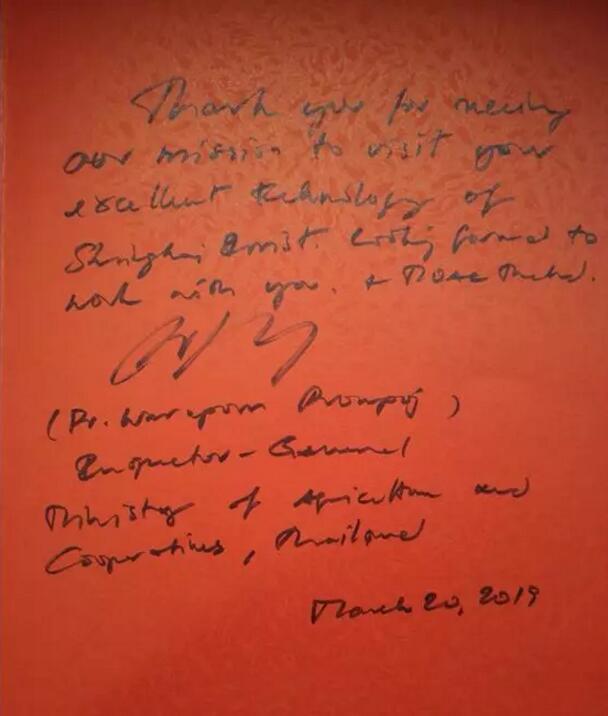 Thank you for
our mission to visit your
excellent technology of
Shanghai. Looking forward to
work with you. &
(Dr. Waraporn Prompoj)
Inspector-General
Ministry of Agriculture and
Cooperatives, Thailand
March 20, 2019